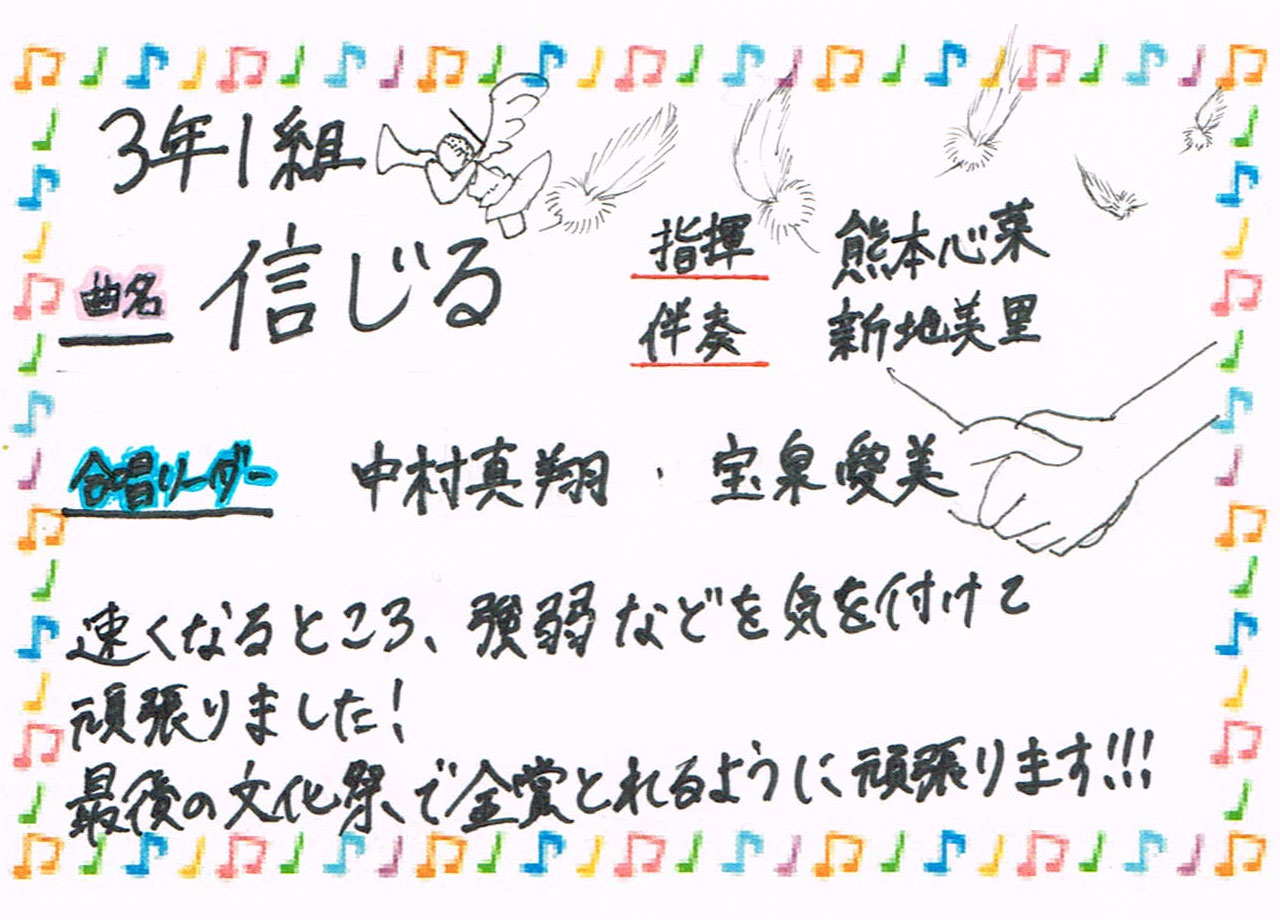 3年1組
曲名 信じる
指揮 熊本心菜
伴奏 新地美里
合唱リーダー 中村真翔・宝泉愛美
速くなるところ、強弱などを気を付けて
頑張りました!
最後の文化祭で金賞とれるように頑張ります!!!